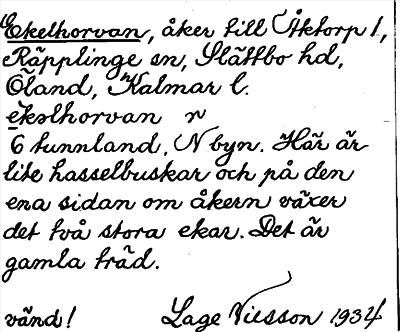 Ekelhorvan, åker till Åktorp 1,
Räpplinge sn, Slättbo hd,
Öland, Kalmar l.
ekelhorvan n
6 tunnland, N byn. Här är
lite hasselbuskar och på den
ena sidan om åkern växer
det två stora ekar. Det är
gamla träd.
vänd! Lage Nilsson 1934